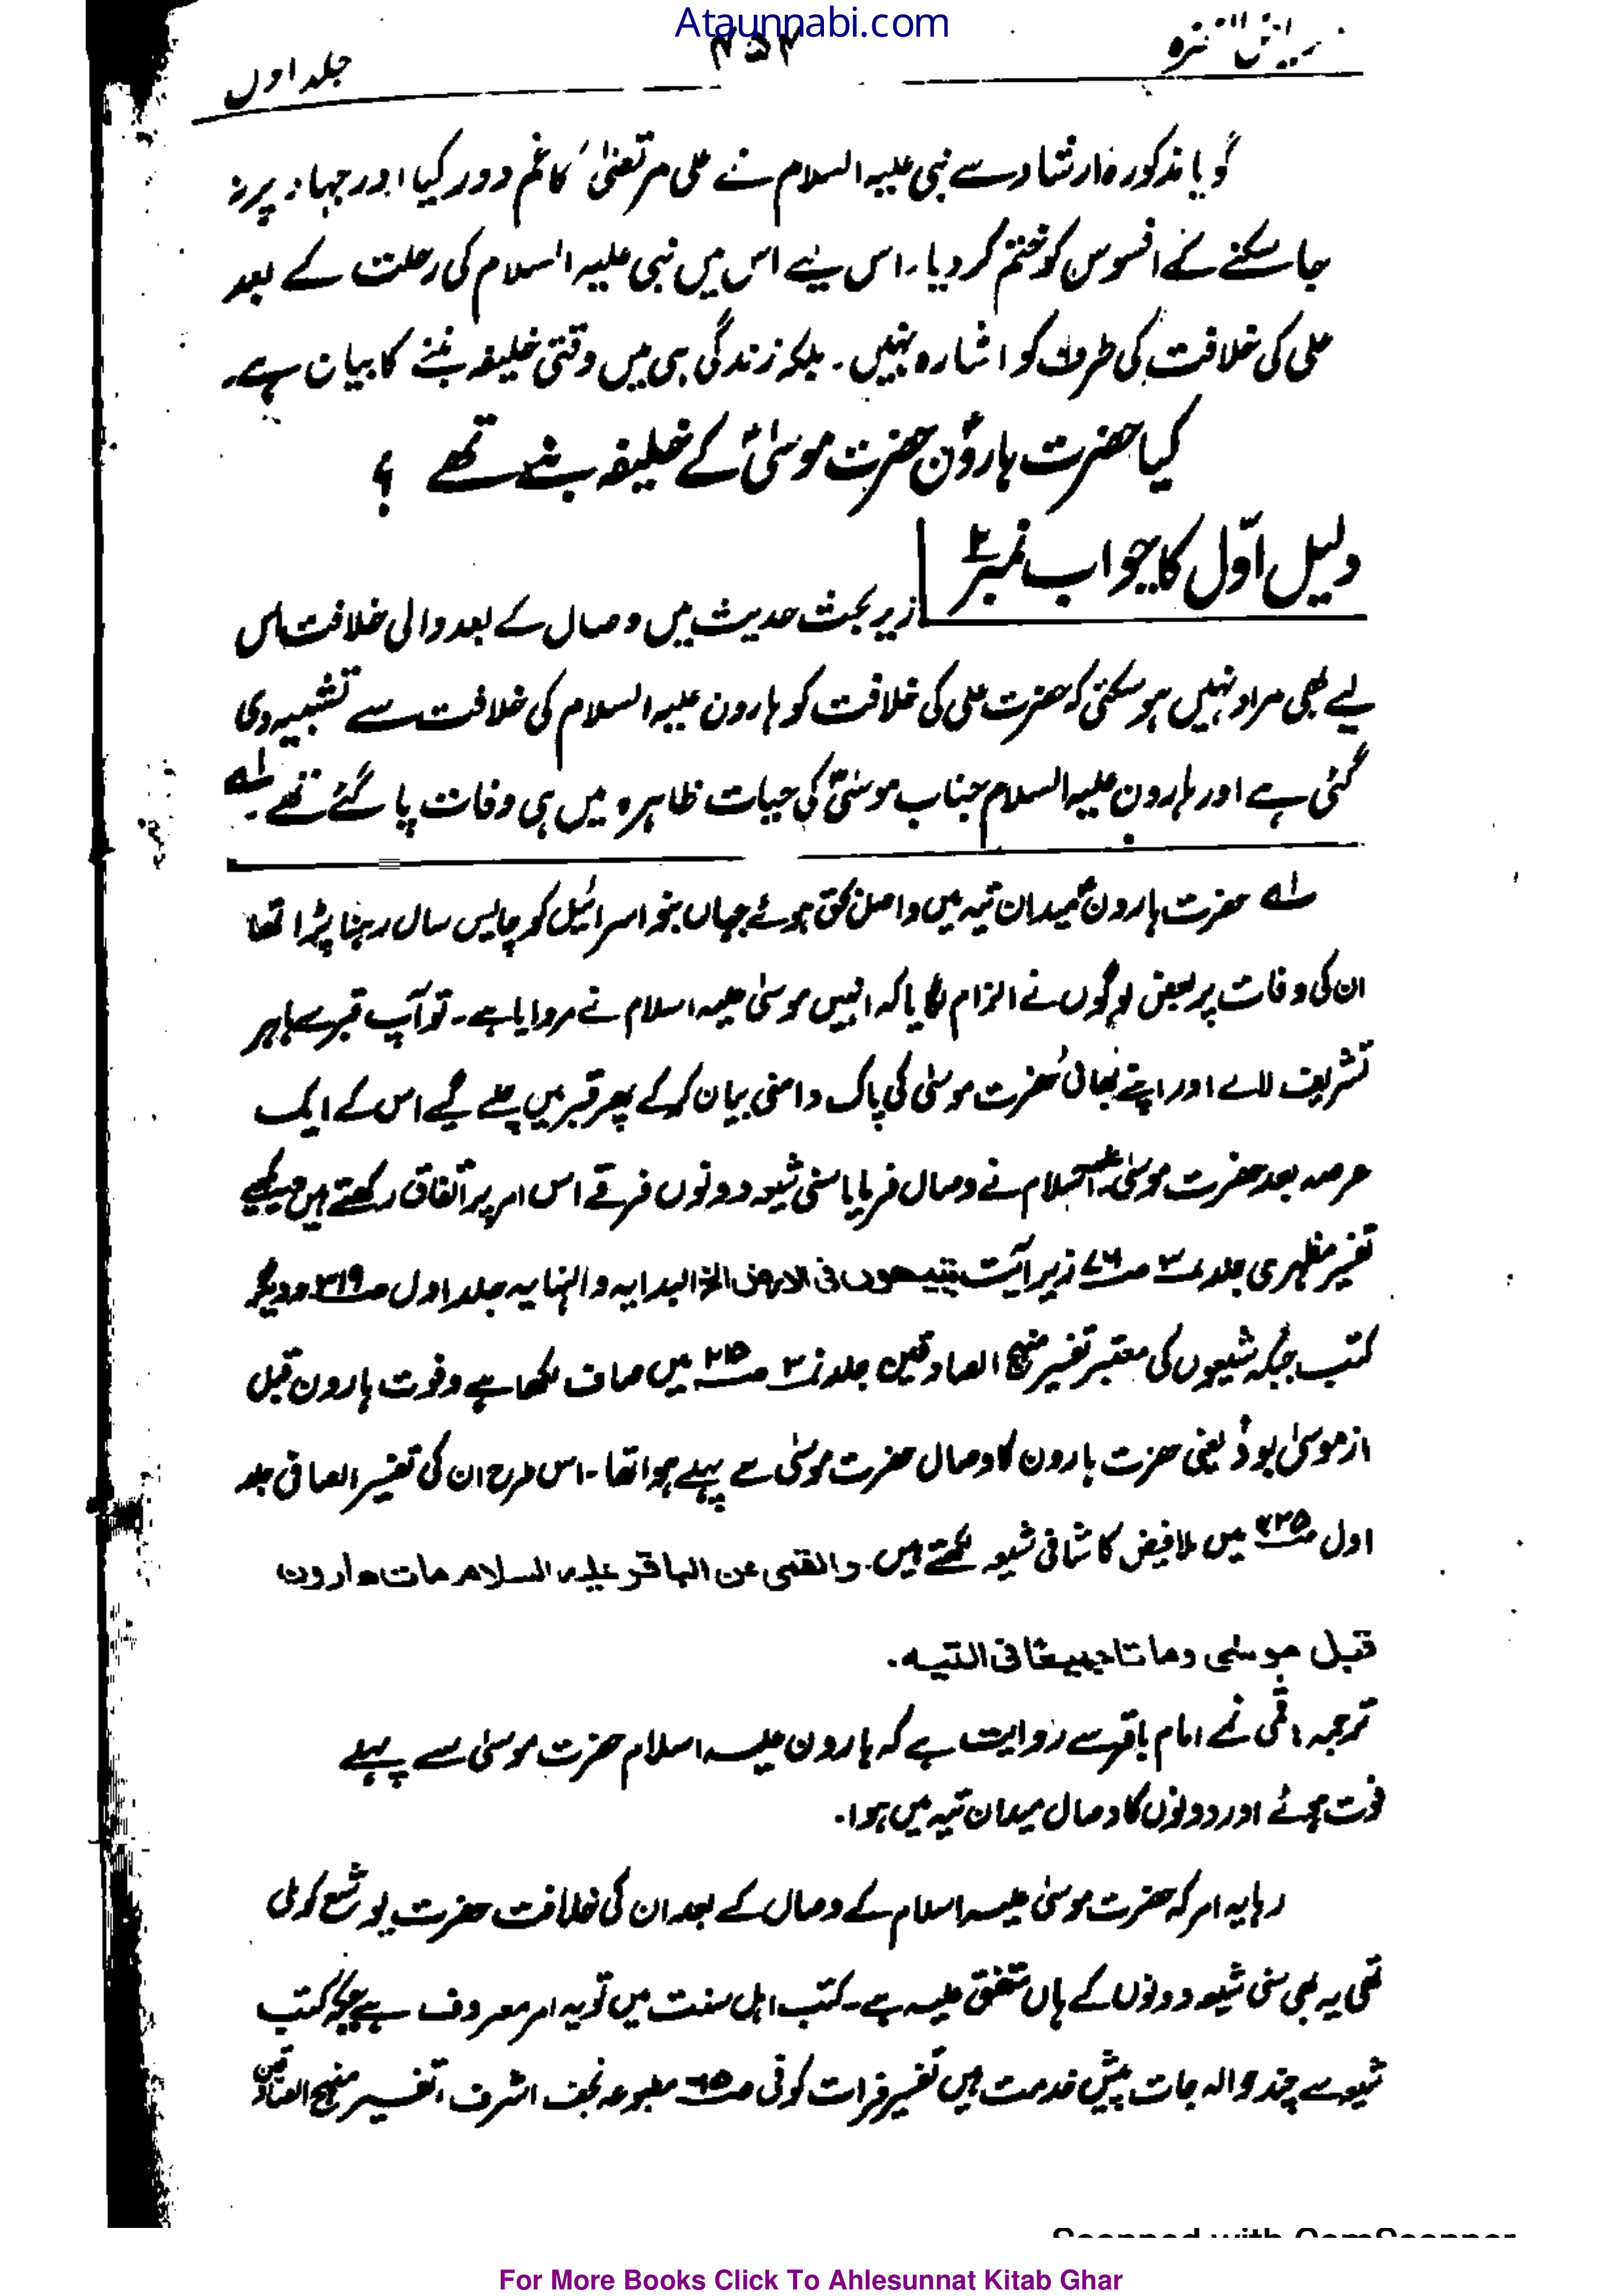 Ataunnabi.com
ریاض النضرہ ۴۵۲ جلد اول
گویا مذکورہ ارشاد سے نبی علیہ السلام نے علی مرتضیٰؓ کا غم دور کیا اور جہاد پر نہ
جا سکنے کے افسوس کو ختم کر دیا۔ اس لیے اس میں نبی علیہ السلام کی رحلت کے بعد
علی کی خلافت کی طرف کو اشارہ نہیں۔ بلکہ زندگی ہی میں وقتی خلیفہ بننے کا بیان ہے۔
کیا حضرت ہارونؑ حضرت موسیٰؑ کے خلیفہ بنے تھے ؟
دلیل اوّل کا جواب نمبر ۲
زیر بحث حدیث میں وصال کے بعد والی خلافت اس
لیے بھی مراد نہیں ہو سکتی کہ حضرت علی کی خلافت کو ہارون علیہ السلام کی خلافت سے تشبیہ دی
گئی ہے اور ہارون علیہ السلام جناب موسیٰؑ کی حیات ظاہرہ میں ہی وفات پا گئے تھے۔ لہ
لہ حضرت ہارونؑ میدان تیہ میں واصل بحق ہوئے جہاں بنو اسرائیل کو چالیس سال رہنا پڑا تھا
ان کی وفات پر بعض لوگوں نے الزام لگایا کہ انہیں موسیٰ علیہ اسلام نے مروایا ہے۔ تو آپ قبر سے باہر
تشریف لائے اور اپنے بھائی حضرت موسیٰ کی پاک دامنی بیان کر کے پھر قبر میں چلے گیے اس کے ایک
عرصہ بعد حضرت موسیٰ علیہ السلام نے وصال فرمایا سنی شیعہ دونوں فرقے اس امر پر اتفاق رکھتے ہیں دیکھیے
تفسیر مظہری جلد ۳ ص ۷۶ زیر آیت یتیھون فی الارض الخ البدایہ والنہایہ جلد اول ص ۳۱۹ ودیگر
کتب جبکہ شیعوں کی معتبر تفسیر منہج الصادقین جلد ۳ ص ۲۱۵ میں صاف لکھا ہے وفوت ہارون قبل
از موسیٰ بود یعنی حضرت ہارون کا وصال حضرت موسیٰ سے پہلے ہوا تھا۔ اس طرح ان کی تفسیر الصافی جلد
اول ص ۴۳۵ میں ملا فیض کاشانی شیعہ لکھتے ہیں۔ والقمی عن الباقر علیہ السلام مات ھارون
قبل موسٰی وماتا جمیعًا فی التیہ۔
ترجمہ: قمی نے امام باقر سے روایت ہے کہ ہارون علیہ اسلام حضرت موسیٰ سے پہلے
فوت ہوئے اور دونوں کا وصال میدان تیہ میں ہوا۔
رہا یہ امر کہ حضرت موسیٰ علیہ اسلام کے وصال کے بعد ان کی خلافت حضرت یوشع کو ملی
تھی یہ بھی سنی شیعہ دونوں کے ہاں متفق علیہ ہے۔ کتب اہل سنت میں تو یہ امر معروف ہے جبکہ کتب
شیعہ سے چند حوالہ جات پیش خدمت ہیں تفسیر فرات کوفی ص ۶۵ مطبوعہ نجف اشرف، تفسیر منہج الصادقین
Scanned with CamScanner
For More Books Click To Ahlesunnat Kitab Ghar